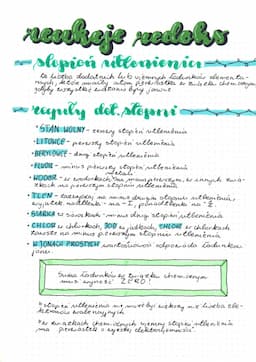 reakcje redoks
stopień utlenienia
to liczba dodatnich lub ujemnych ładunków elementa-
rnych, które miałby atom pierwiastka w związku chemicznym
gdyby wszystkie wiązania były jonowe
reguły dot. stopni
• STAN WOLNY - zerowy stopień utlenienia
• LITOWCE - pierwszy stopień utlenienia
• BERYLOWCE - drugi stopień utlenienia
• FLUOR - minus pierwszy stopień utlenienia
metali
• WODÓR - w wodorkach na minus pierwszym, w innych zwią-
zkach na pierwszym stopniu utlenienia
• TLEN - zazwyczaj na minus drugim stopniu utlenienia,
wyjątek nadtlenki - na -I, ponadtlenki na -½
• SIARKA w siarczkach - minus drugi stopień utlenienia
• CHLOR w chlorkach, JOD w jodkach,
zawsze na minus pierwszym stopniu utlenienia
• W JONACH PROSTYCH wartościowość odpowiada ładunkowi
jonu
Suma ładunków w związku chemicznym
musi wynosić ZERO!
* stopień utlenienia nie może być większy niż liczba ele-
ktronów walencyjnych
* w związkach chemicznych ujemny stopień utlenienia
ma pierwiastek o wyższej elektroujemności